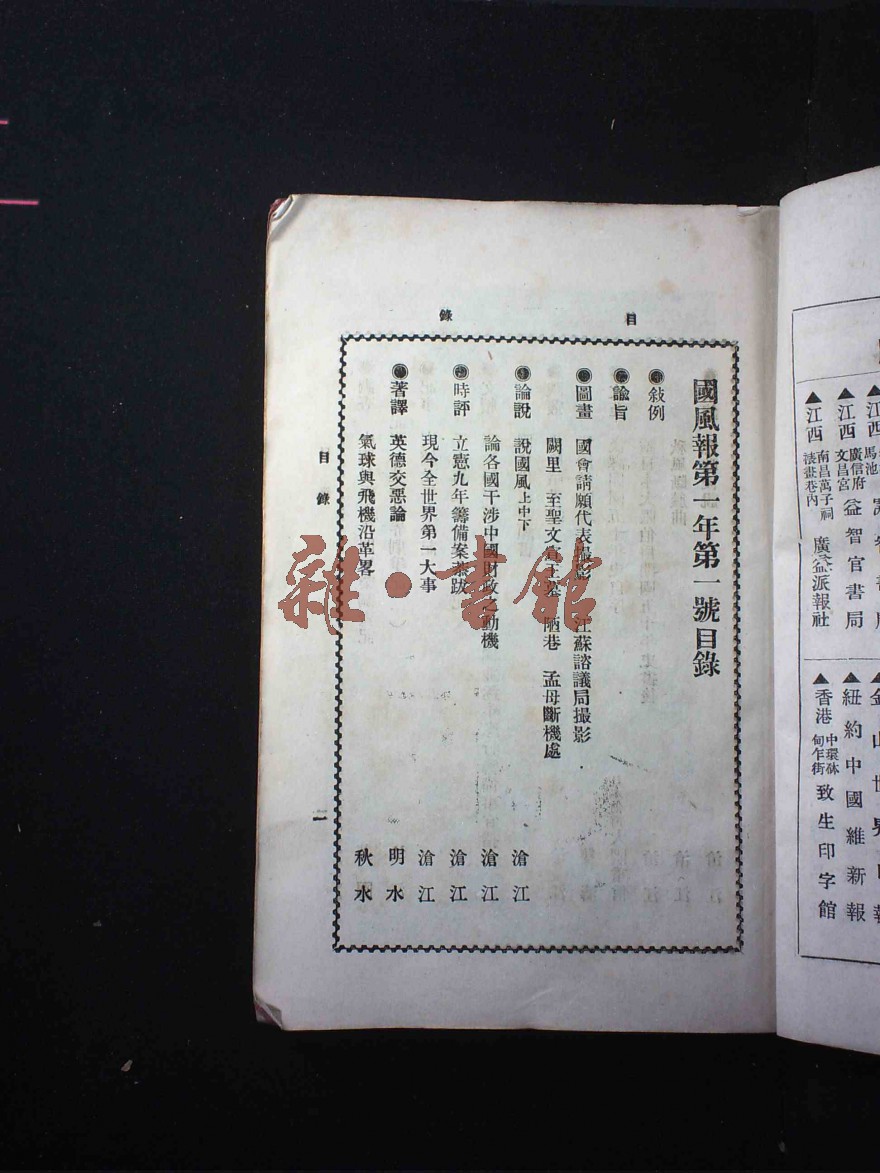 目錄
國風報第一年第一號目錄
●敍例
●諭旨
●圖畫 國會請願代表撮影 江蘇諮議局撮影
闕里 至聖文宣王墓 陋巷 孟母斷機處
●論說 說國風上中下 滄江
論各國干涉中國財政之動機 滄江
●時評 立憲九年籌備案恭跋 滄江
現今全世界第一大事 滄江
●著譯 英德交惡論 明水
氣球與飛機沿革畧 秋水
目錄
一
雜·書館
馬池
▲江西 廣信府文昌宮 益智官書局
▲江西 南昌萬子祠 淒畫巷內 廣益派報社
▲紐約中國維新報
▲香港 中環砵甸乍街 致生印字館